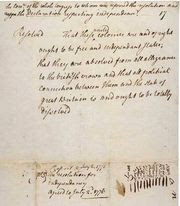 The Com^ee of the whole Congress to whom was referred the resolution and
the Declaration respecting independence. 17
Resolved That these united colonies are and of right
ought to be free and independant states,
that they are absolved from all allegiance
to the british crown and that all political
connection between them and the state of
great Britain is and ought to be totally
dissolved
resolution for
independancy
agreed to July 2. 1776